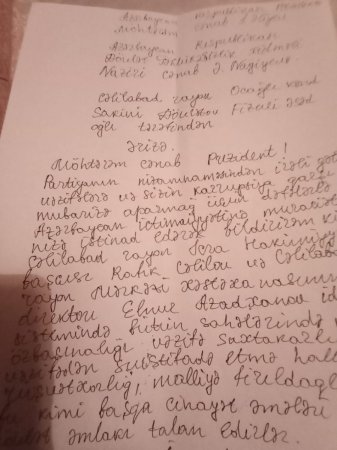 Azərbaycan Respublikası Prezidenti
Möhtərəm cənab
Azərbaycan Respublikası
Dövlət Təhlükəsizlik Xidməti
cənab Ə Nağıyev
Cəlilabad rayon Ocaqlı kənd
Sakini Fizuli Əsəd
oğlu tərəfindən
Ərizə.
Möhtərəm cənab Prezident!
Partiyanın nizamnaməsindən irəli gələn
vəzifələrə və sizin karrupsiya qarşı
mubarizə aparmaq üçün dəfələrlə
Azərbaycan ictimaiyyətinə muraciəti
nizə istinad edərək bildirirəm ki
Cəlilabad rayon İcra Hakimiyyə
başçısı Rafik Cəlilov və Cəlilaba
rayon Mərkəzi xəstəxanasının
direktoru Elnur Azadxanov id
sistemində bütün sahələrində
özbaşınalığı vəzifə saxtakarlı
vəzifədən suistifadə etmə hall
rüşvətxorlığı, malliyə fırıldaql
kimi başqa cinayət əməlləri
əmlakı talan edirlər.